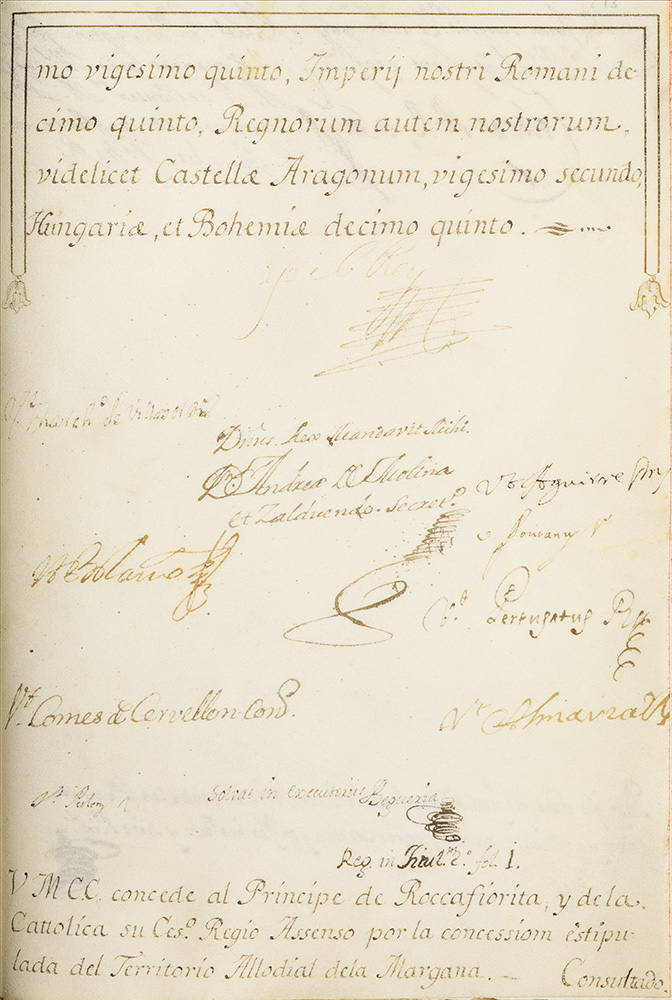 mo vigesimo quinto, Imperij nostri Romani de-
cimo quinto, Regnorum autem nostrorum,
videlicet Castellæ Aragonum, vigesimo secundo,
Hungariæ, et Bohemiæ decimo quinto.
Yo el Rey
Dñus Rex Mandavit Mihi
Dn Andreæ de Molina
et Zalduendo Secret.º
Vt Aguirre
Vt Bolaño
Vt Perlongus Rg
Vt Comes de Cervellon Cons.
Vt Almarza Rg
Solvat in executorie Begueria
Reg. in Titul. 2.º fol. 1.
V M.C.C. concede al Principe de Roccafiorita, y dela
Cattolica su Ces.º Regio Assenso por la concessiom estipu-
lada del Territorio Allodial dela Margana. Consultado.